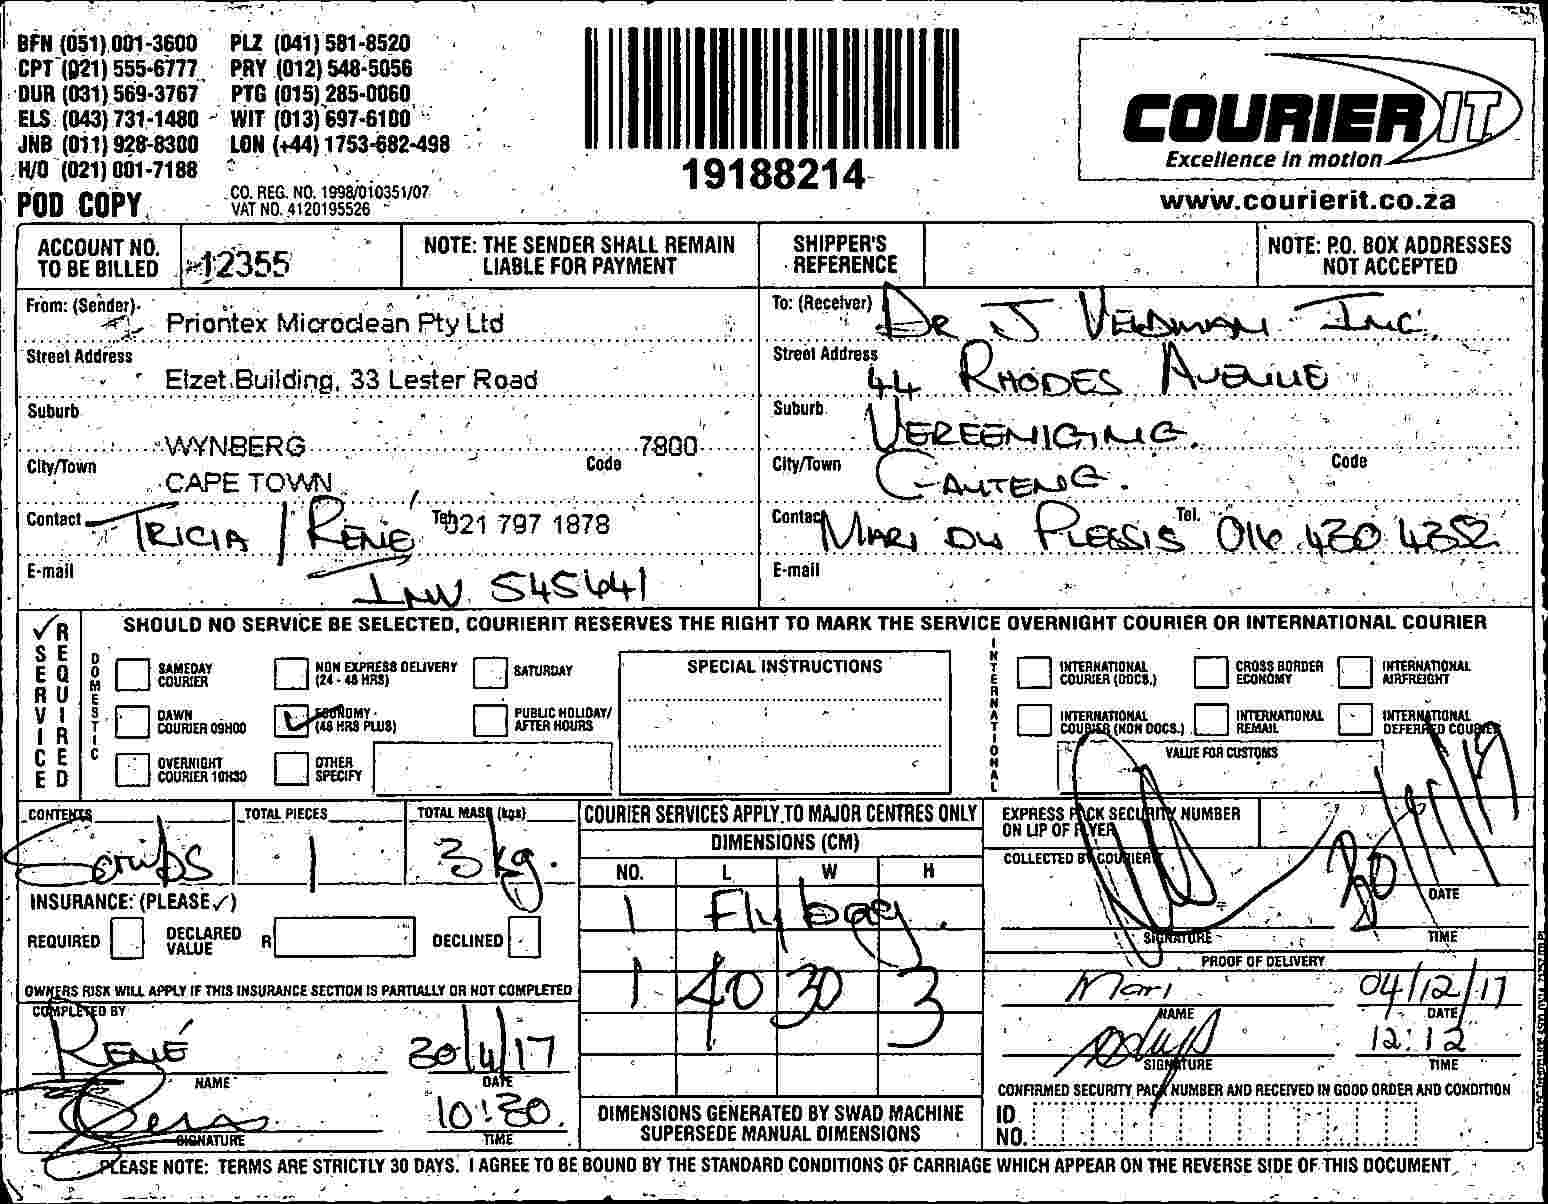 BFN (051) 001-3600 PLZ (041) 581-8520
CPT (021) 555-6777 PRY (012) 548-5056
DUR (031) 569-3767 PTG (015) 285-0060
ELS (043) 731-1480 WIT (013) 697-6100
JNB (011) 928-8300 LON (+44) 1753-682-498
H/O (021) 001-7188
POD COPY
CO. REG. NO. 1998/010351/07
VAT NO. 4120195526
19188214
COURIER IT
Excellence in motion
www.courierit.co.za
ACCOUNT NO. TO BE BILLED 12355
NOTE: THE SENDER SHALL REMAIN LIABLE FOR PAYMENT
SHIPPER'S REFERENCE
NOTE: P.O. BOX ADDRESSES NOT ACCEPTED
From: (Sender) Priontex Microclean Pty Ltd
Street Address Elzet Building, 33 Lester Road
Suburb WYNBERG 7800
City/Town CAPE TOWN Code
Contact TRICIA / RENÉ Tel. 021 797 1878
E-mail INV 545641
To: (Receiver) DR J VELDMAN INC.
Street Address 44 RHODES AVENUE
Suburb VEREENIGING.
City/Town GAUTENG. Code
Contact MARI DU PLESSIS Tel. 016 430 4352
E-mail
✓ SERVICE REQUIRED
SHOULD NO SERVICE BE SELECTED, COURIERIT RESERVES THE RIGHT TO MARK THE SERVICE OVERNIGHT COURIER OR INTERNATIONAL COURIER
DOMESTIC
SAMEDAY COURIER
NON EXPRESS DELIVERY (24 - 48 HRS)
SATURDAY
DAWN COURIER 09H00
✓ ECONOMY (48 HRS PLUS)
PUBLIC HOLIDAY/ AFTER HOURS
OVERNIGHT COURIER 10H30
OTHER SPECIFY
SPECIAL INSTRUCTIONS
INTERNATIONAL
INTERNATIONAL COURIER (DOCS.)
CROSS BORDER ECONOMY
INTERNATIONAL AIRFREIGHT
INTERNATIONAL COURIER (NON DOCS.)
INTERNATIONAL REMAIL
INTERNATIONAL DEFERRED COURIER
VALUE FOR CUSTOMS
CONTENTS Scrubs
TOTAL PIECES 1
TOTAL MASS (kgs) 3kg.
INSURANCE: (PLEASE ✓)
REQUIRED DECLARED VALUE R DECLINED
OWNERS RISK WILL APPLY IF THIS INSURANCE SECTION IS PARTIALLY OR NOT COMPLETED
COMPLETED BY
RENÉ 30/11/17
NAME DATE
10:30
SIGNATURE TIME
COURIER SERVICES APPLY TO MAJOR CENTRES ONLY
DIMENSIONS (CM)
NO. L W H
1 Flybag
1 40 30 3
DIMENSIONS GENERATED BY SWAD MACHINE SUPERSEDE MANUAL DIMENSIONS
EXPRESS PACK SECURITY NUMBER ON LIP OF FLYER
COLLECTED BY COURIER
DATE
SIGNATURE TIME
PROOF OF DELIVERY
Mari 04/12/17
NAME DATE
12:12
SIGNATURE TIME
CONFIRMED SECURITY PACK NUMBER AND RECEIVED IN GOOD ORDER AND CONDITION
ID NO.
PLEASE NOTE: TERMS ARE STRICTLY 30 DAYS. I AGREE TO BE BOUND BY THE STANDARD CONDITIONS OF CARRIAGE WHICH APPEAR ON THE REVERSE SIDE OF THIS DOCUMENT